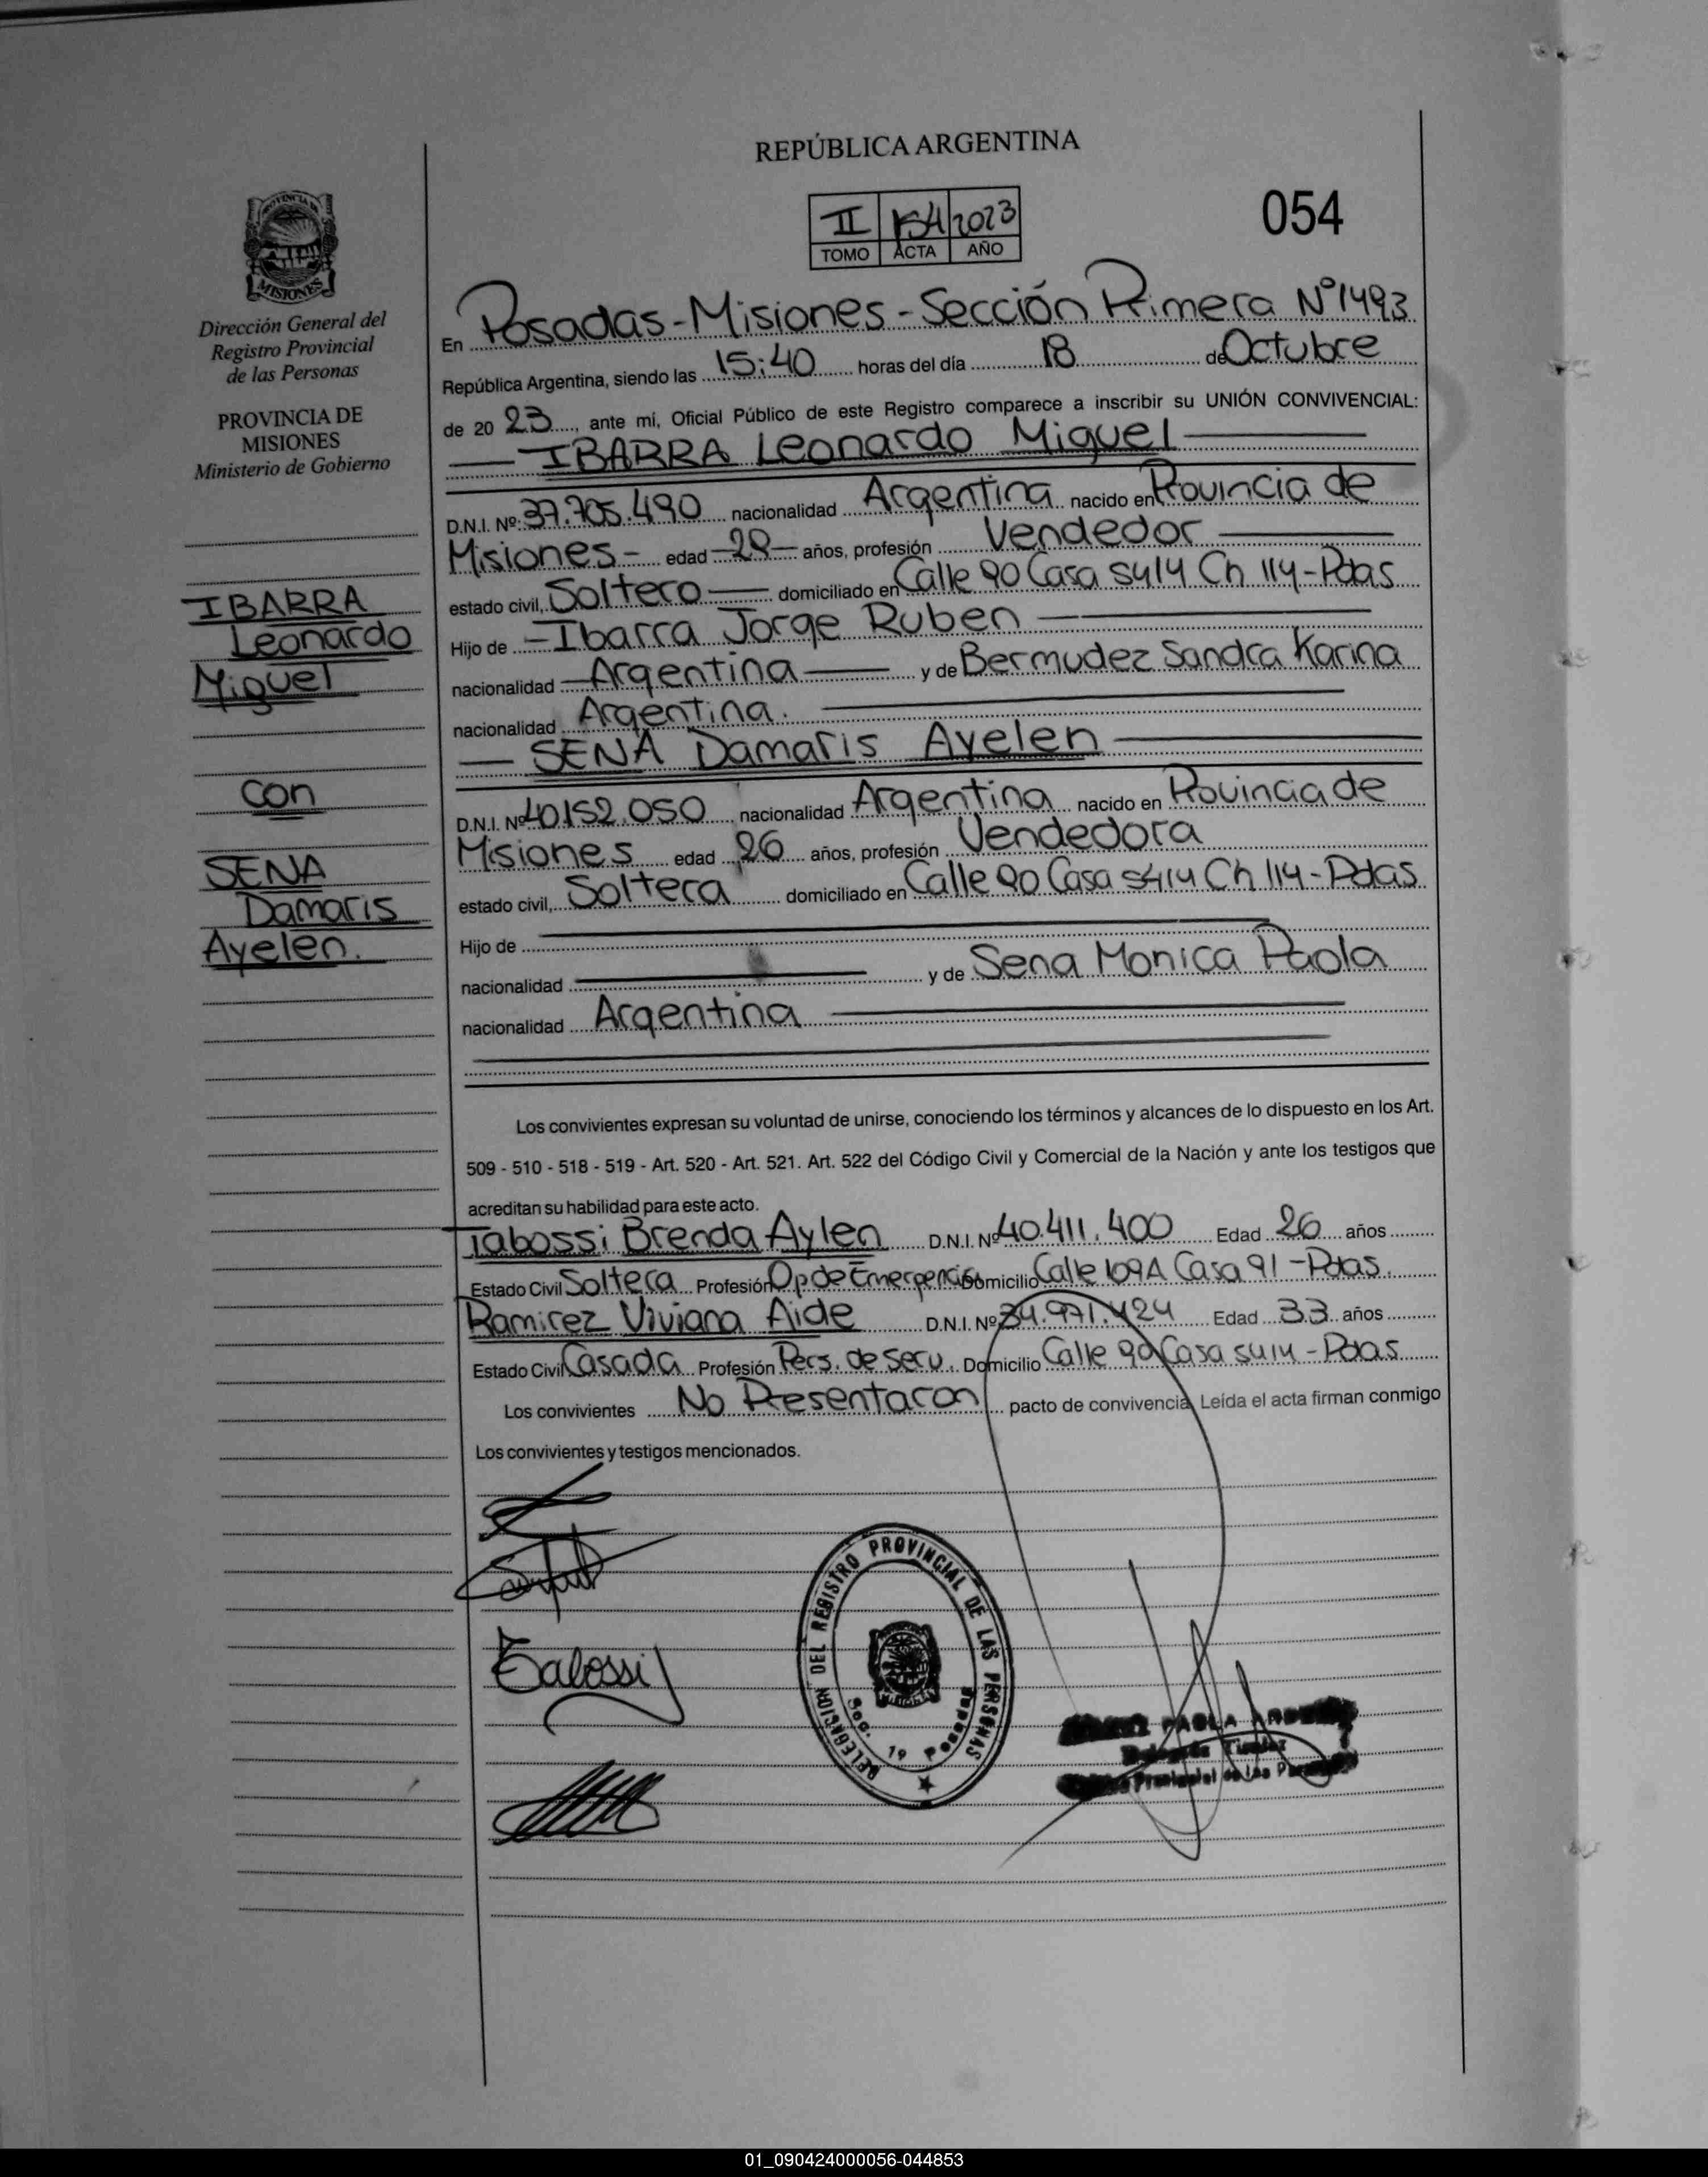 REPÚBLICA ARGENTINA
054
II 154 2023
TOMO ACTA AÑO
PROVINCIA DE
MISIONES
Dirección General del
Registro Provincial
de las Personas
PROVINCIA DE
MISIONES
Ministerio de Gobierno
IBARRA
Leonardo
Miguel
con
SENA
Damaris
Ayelen.
En Posadas-Misiones-Sección Primera Nº1493
República Argentina, siendo las 15:40 horas del día 18 de Octubre
de 20 23, ante mí, Oficial Público de este Registro comparece a inscribir su UNIÓN CONVIVENCIAL:
IBARRA Leonardo Miguel
D.N.I. Nº 37.705.490 nacionalidad Argentina nacido en Provincia de
Misiones- edad 29 años, profesión Vendedor
estado civil, Soltero domiciliado en Calle 90 Casa 5414 Ch 114-Pdas
Hijo de Ibarra Jorge Ruben
nacionalidad Argentina y de Bermudez Sandra Karina
nacionalidad Argentina.
SENA Damaris Ayelen
D.N.I. Nº 40.152.050 nacionalidad Argentina nacido en Provincia de
Misiones edad 26 años, profesión Vendedora
estado civil, Soltera domiciliado en Calle 90 Casa 5414 Ch 114-Pdas
Hijo de
nacionalidad y de Sena Monica Paola
nacionalidad Argentina
Los convivientes expresan su voluntad de unirse, conociendo los términos y alcances de lo dispuesto en los Art.
509 - 510 - 518 - 519 - Art. 520 - Art. 521. Art. 522 del Código Civil y Comercial de la Nación y ante los testigos que
acreditan su habilidad para este acto.
Tabossi Brenda Aylen D.N.I. Nº 40.411.400 Edad 26 años
Estado Civil Soltera Profesión Op de Emergencia Domicilio Calle 109A Casa 91-Pdas.
Ramirez Viviana Aide D.N.I. Nº 34.971.424 Edad 33 años
Estado Civil Casada Profesión Pers. de Serv. Domicilio Calle 90 Casa 5414-Pdas
Los convivientes No Presentaron pacto de convivencia. Leída el acta firman conmigo
Los convivientes y testigos mencionados.
Tabossi
DELEGACION DEL REGISTRO PROVINCIAL DE LAS PERSONAS
Sec. 1º Posadas
PAOLA
Titular
Provincial de las
01_090424000056-044853